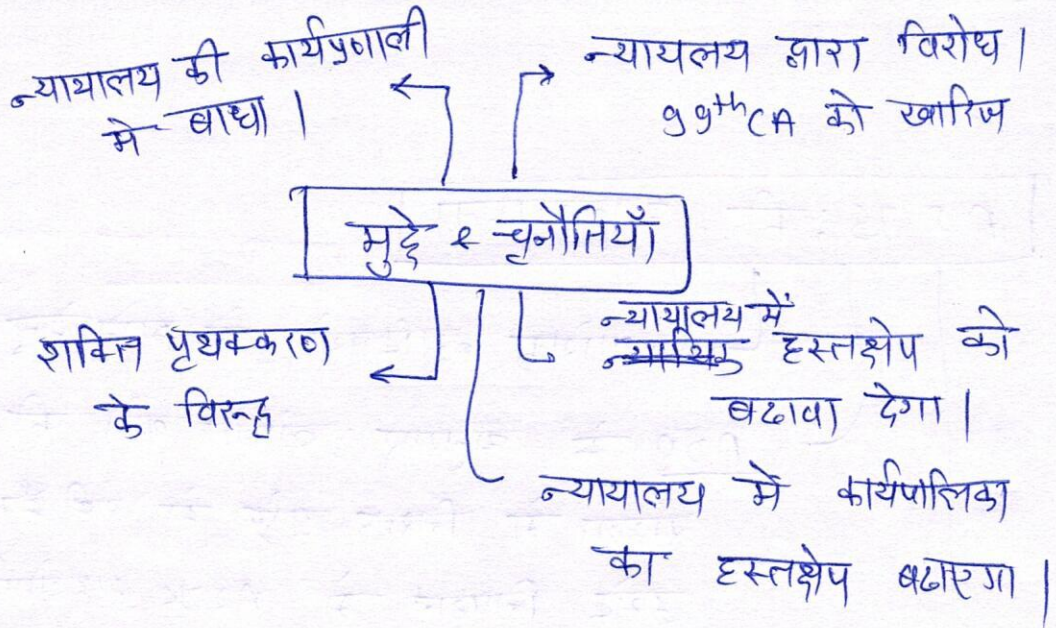 न्यायालय की कार्यप्रणाली
में बाधा।
न्यायलय द्वारा विरोध।
99th CA को खारिज
मुद्दे & चुनौतियाँ
शक्ति पृथक्करण
के विरुद्ध
न्यायालय में
न्यायिक हस्तक्षेप को
बढावा देगा।
न्यायालय मे कार्यपालिका
का हस्तक्षेप बढाएगा।